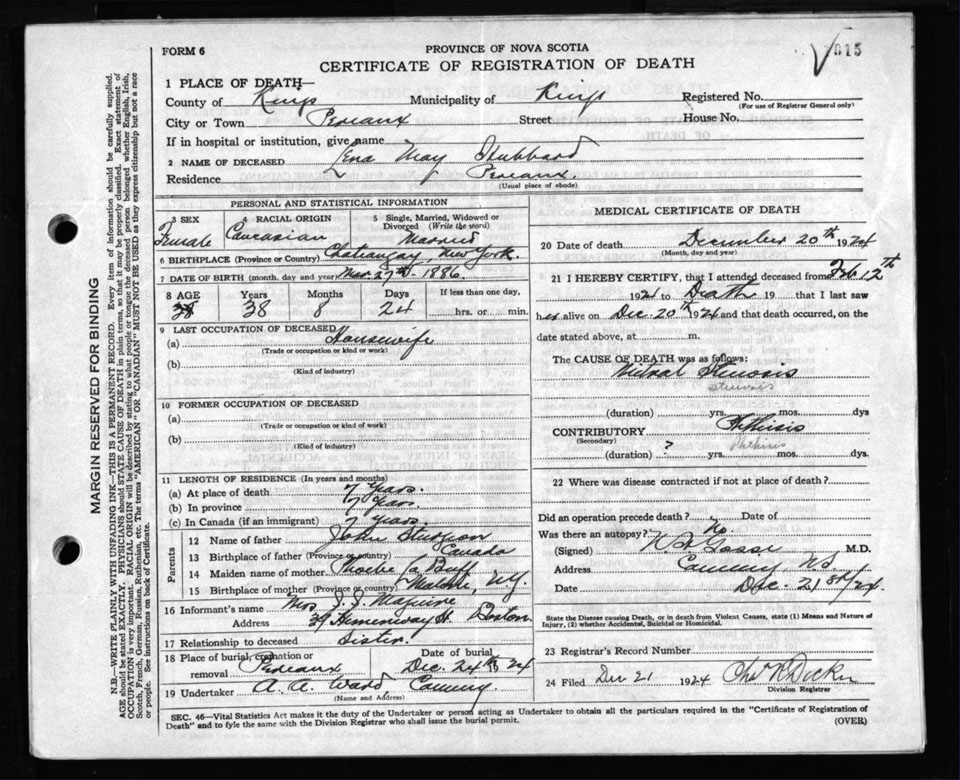 FORM 6
PROVINCE OF NOVA SCOTIA
CERTIFICATE OF REGISTRATION OF DEATH
1 PLACE OF DEATH—
County of Kings Municipality of Kings Registered No.
(For use of Registrar General only)
City or Town Pereaux Street House No.
If in hospital or institution, give name
2 NAME OF DECEASED Lena May Hubbard
Residence Pereaux.
(Usual place of abode)
PERSONAL AND STATISTICAL INFORMATION
3 SEX Female
4 RACIAL ORIGIN Caucasian
5 Single, Married, Widowed or Divorced (Write the word) Married
6 BIRTHPLACE (Province or Country) Chateaugay, New York.
7 DATE OF BIRTH (month, day and year) 27th - 1886.
8 AGE Years Months Days If less than one day,
38 38 8 24 hrs. or min.
9 LAST OCCUPATION OF DECEASED
(a) Housewife
(Trade or occupation or kind or work)
(b)
(Kind of industry)
10 FORMER OCCUPATION OF DECEASED
(a)
(Trade or occupation or kind of work)
(b)
(Kind of industry)
11 LENGTH OF RESIDENCE (In years and months)
(a) At place of death 7 years.
(b) In province 7 years.
(c) In Canada (if an immigrant) 7 years.
Parents
12 Name of father John
13 Birthplace of father (Province or country) Canada
14 Maiden name of mother Phoebe La Buff
15 Birthplace of mother (Province or country) N.Y.
16 Informant's name Mrs. J. J. Maguire
Address 39 Hemenway St. Boston
17 Relationship to deceased Sister.
18 Place of burial, cremation or removal Pereaux Date of burial Dec. 24th 1924
19 Undertaker A. A. Ward Canning.
(Name and Address)
MEDICAL CERTIFICATE OF DEATH
20 Date of death December 20th 1924
(Month, day and year)
21 I HEREBY CERTIFY, that I attended deceased from Feb 12th
1924 to Death 19 that I last saw
her alive on Dec. 20th 1924 and that death occurred, on
date stated above, at m.
The CAUSE OF DEATH was as follows:
Mitral Stenosis
stenosis
(duration) yrs. mos. dys
CONTRIBUTORY Pthisis
(Secondary) phthisis
(duration) ? yrs. mos. dys.
22 Where was disease contracted if not at place of death?
Did an operation precede death? No Date of
Was there an autopsy? No
(Signed) M.D.
Address Canning, NS
Date Dec. 21st / 24
State the Disease causing Death, or in death from Violent Causes, state (1) Means and Nature of Injury, (2) whether Accidental, Suicidal or Homicidal.
23 Registrar's Record Number
24 Filed Dec 21 1924
Division Registrar
SEC. 46—Vital Statistics Act makes it the duty of the Undertaker or person acting as Undertaker to obtain all the particulars required in the "Certificate of Registration of
Death" and to fyle the same with the Division Registrar who shall issue the burial permit. (OVER)
MARGIN RESERVED FOR BINDING
N.B.—WRITE PLAINLY WITH UNFADING INK—THIS IS A PERMANENT RECORD. Every item of information should be carefully supplied.
AGE should be stated EXACTLY. PHYSICIANS should STATE CAUSE OF DEATH in plain terms, so that it may be properly classified. Exact statement of
OCCUPATION is very important. RACIAL ORIGIN will be described by stating to what people or tongue the deceased person belonged whether English, Irish,
Scotch, French, German, Russian, Ruthenian, etc. The terms "AMERICAN" OR "CANADIAN" MUST NOT BE USED as they express citizenship but not a race
or people. See instructions on back of Certificate.